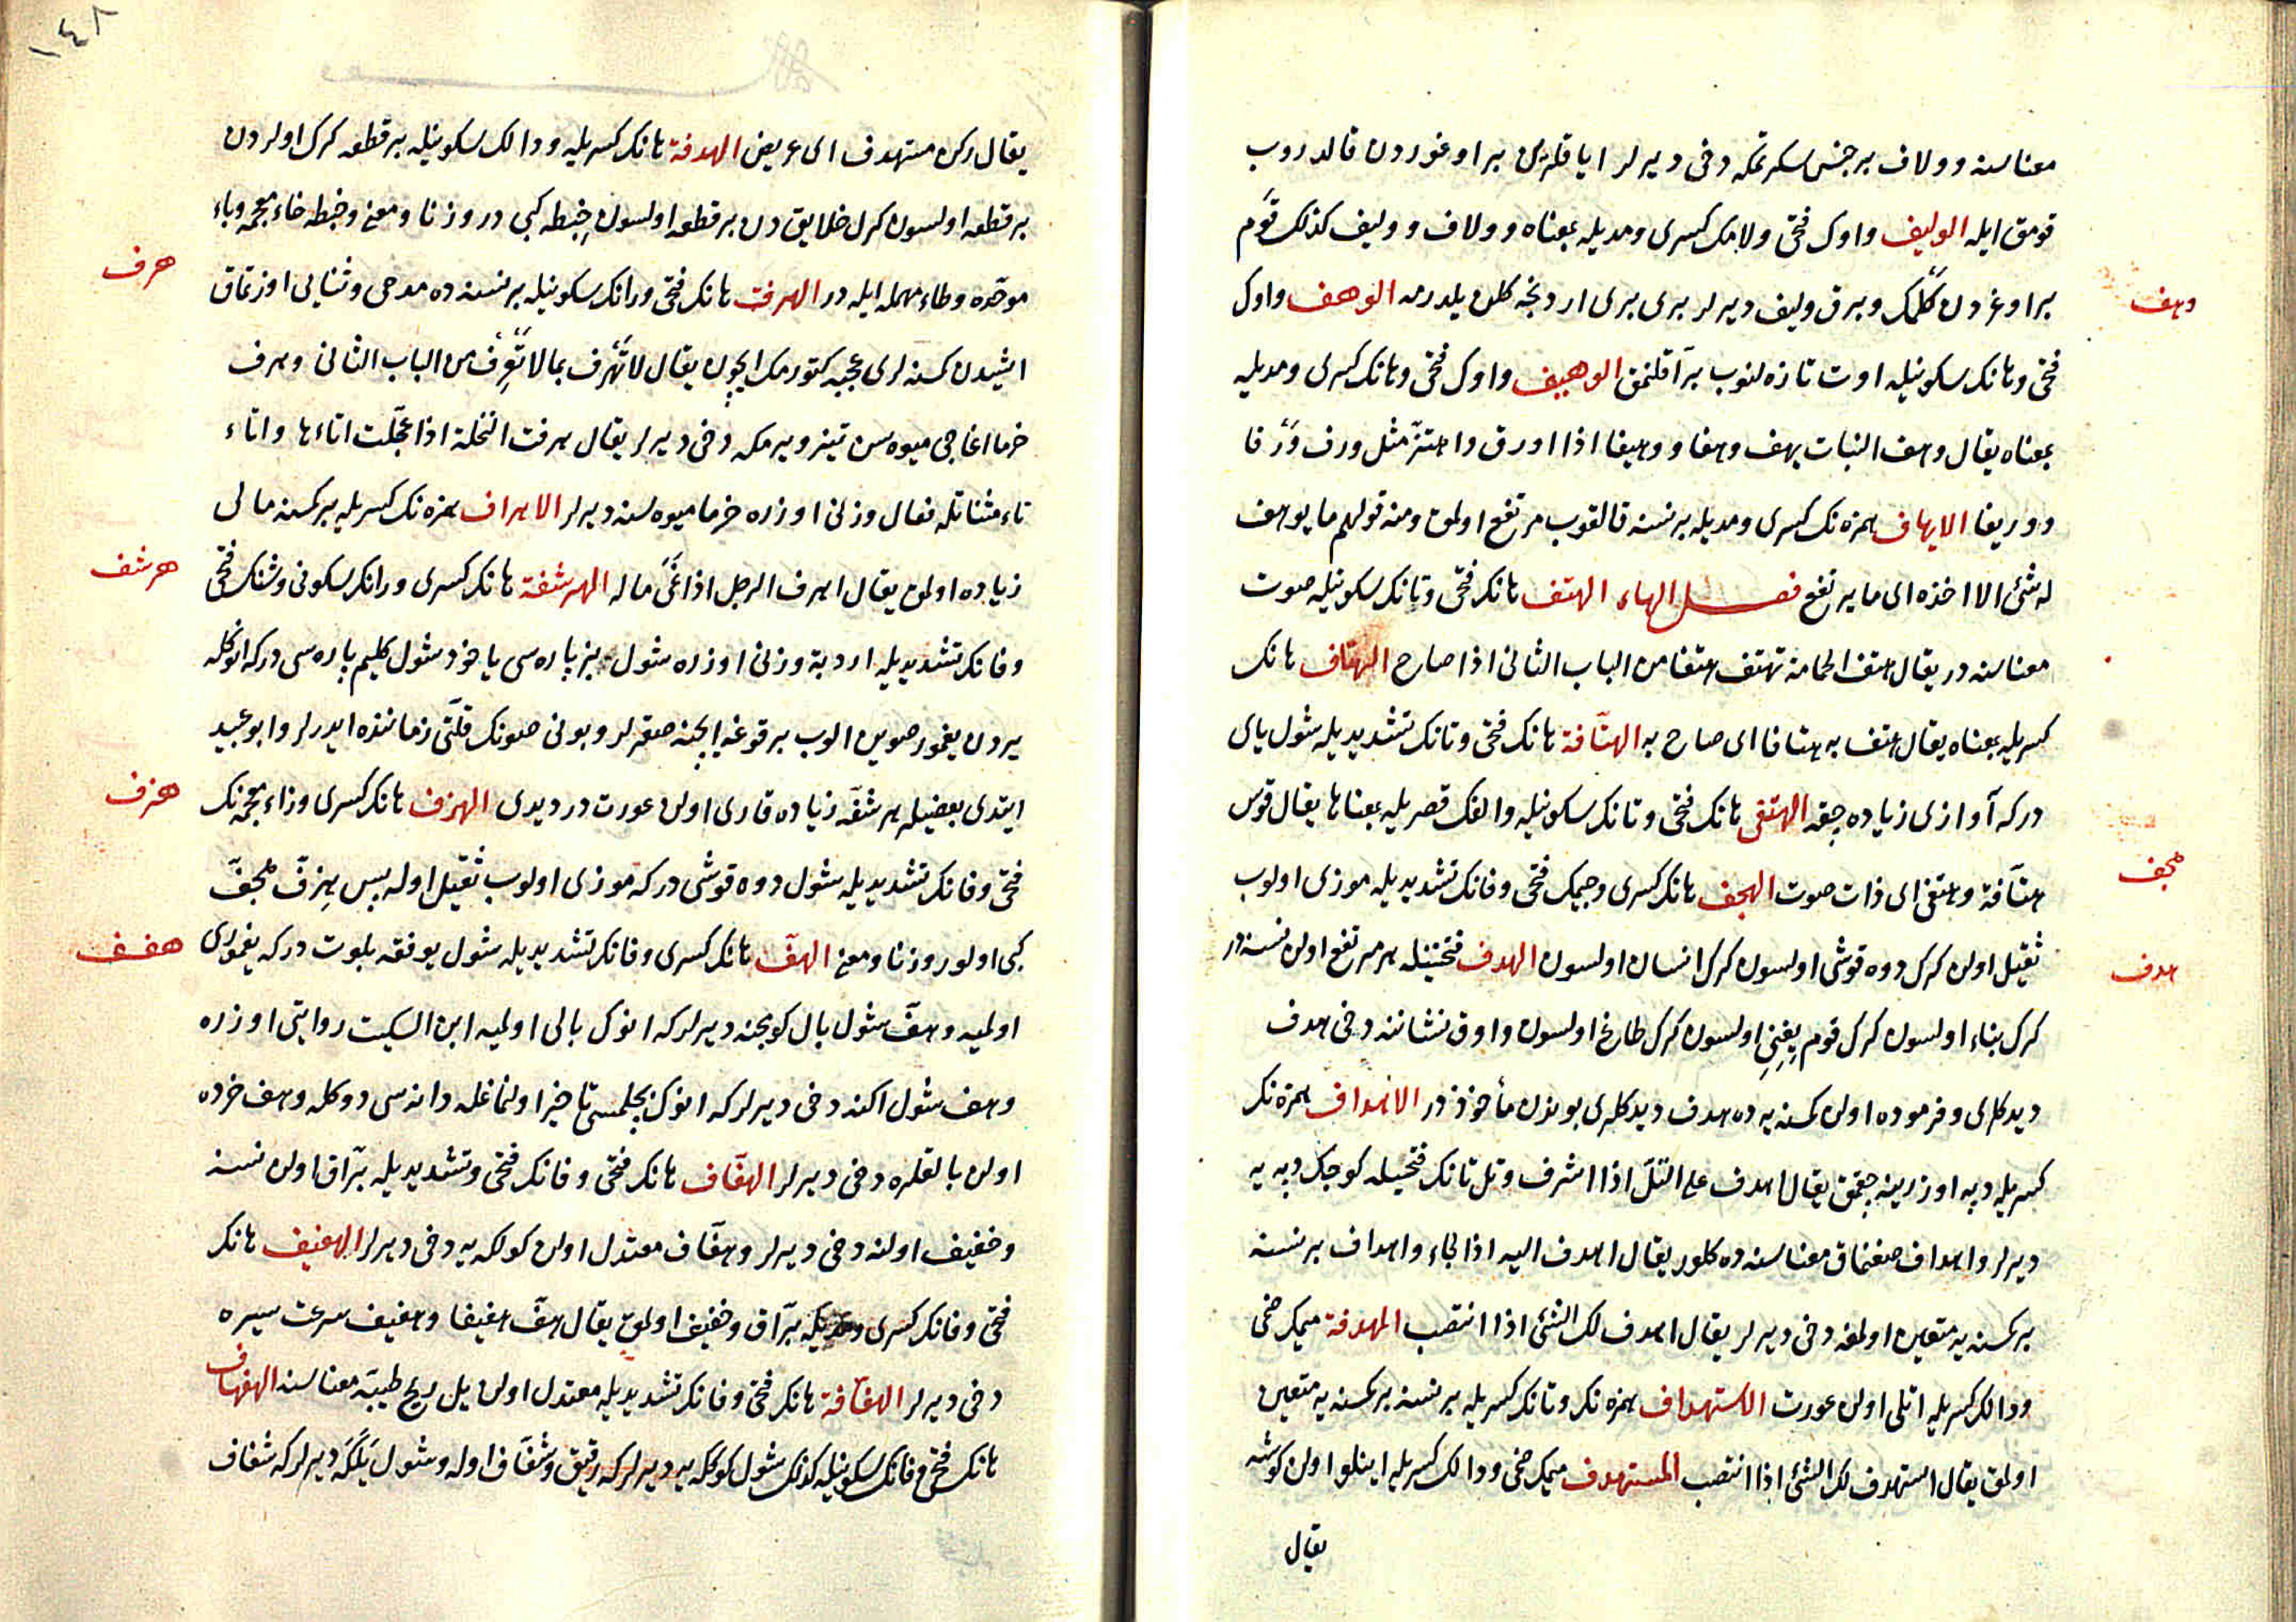 معناسنه وولاف برجنس سكرتمكه دخی دیرلر ایاقلرین براوغوردن قالدروب
قومق ایله الولیف واوك فتحی ولامك كسری ومدیله بمعناه وولاف وولیف كذلك قوم
براوغردن كلمك وبرق ولیف دیرلر بری بری اردنجه كلن یلدرمه الوهف واوك
وهف
فتحی وهانك سكونیله اوت تازه لنوب براقلنمق الوهیف واوك فتحی وهانك كسری ومدیله
بمعناه یقال وهف النبات یهف وهفا ووهیفا اذا اورق واهتز مثل ورف ورفا
ووریفا الایهاف همزه نك كسری ومدیله برنسنه قالقوب مرتفع اولمق ومنه قولهم ما یوهف
له شئ الا اخذه ای ما یرتفع فصل الهاء الهتف هانك فتحی وتانك سكونیله صوت
معناسنه در یقال هتف الحمامة تهتف هتفا من الباب الثانی اذا صاح الهتاف هانك
كسریله بمعناه یقال هتف به هتافا ای صاح به الهتافة هانك فتحی وتانك تشدیدیله شول یای
دركه آوازی زیاده چقه الهتفی هانك فتحی وتانك سكونیله والفك قصریله بمعناها یقال قوس
هتافة وهتفی ای ذات صوت الهجف هانك كسری وجیمك فتحی وفانك تشدیدیله موزی اولوب
هجف
ثقیل اولن كرك دوه قوشی اولسون كرك انسان اولسون الهدف فتحتینله هر مرتفع اولن نسنه در
هدف
كرك بناء اولسون كرك قوم یغنی اولسون كرك طاغ اولسون واوق نشاننه دخی هدف
دیدكلری وفرموده اولن كمسنه یه ده هدف دیدكلری بوندن مأخوذدر الاهداف همزه نك
كسریله دپه اوزرینه چقمق یقال اهدف علی التل اذا اشرف وتل تانك فتحیله كوچك دپه یه
دیرلر واهداف صغنماق معناسنه ده كلور یقال اهدف الیه اذا لجاء واهداف برنسنه
بركسنه یه متعین اولمغه دخی دیرلر یقال اهدف لك الشئ اذا انتصب المهدفة میمك ضمی
ودالك كسریله اتلی اولن عورت الاستهداف همزه نك وتانك كسریله برنسنه بركسنه یه متعین
اولمق یقال استهدف لك الشئ اذا انتصب المستهدف میمك ضمی ودالك كسریله اینلو اولن كوشه
یقال
١٤٨
یقال ركن مستهدف ای عریض الهدفة هانك كسریله ودالك سكونیله برقطعه كرك اولردن
برقطعه اولسون كرك خلایق دن برقطعه اولسون خبطه كبی در وزنا ومعنی وخبطه خاء معجمه وباء
موحده وطاء مهمله ایله در الهرفت هانك فتحی ورانك سكونیله برنسنه ده مدحی وثنایی اوزتماق
هرف
ایشیدن كسنه لری عجبه كتورمك ایچون یقال لا تهرف بما لا تعرف من الباب الثانی وهرف
خرما اغاجی میوه سن تیز ویرمكه دخی دیرلر یقال هرفت النخلة اذا عجلت اتاءها واتاء
تاء مثناتله فعال وزنی اوزره خرما میوه لسنه دیرلر الاهراف همزه نك كسریله بركسنه مالی
زیاده اولمق یقال اهرف الرجل اذا نمی ماله الهرشفة هانك كسری ورانك سكونی وشینك فتحی
هرشف
وفانك تشدیدیله اردبة وزنی اوزره شول بز پاره سی یاخود شول كلیم پاره سی دركه انوكله
یردن یغمور صوین الوب برقوغه ایچنه صقرلر وبونی صونك قلتی زماننده ایدرلر وابو عبید
ایتدی بعضیله هرشفه زیاده قاری اولن عورت در دیدی الهزف هانك كسری وزاء معجمه نك
هزف
فتحی وفانك تشدیدیله شول دوه قوشی دركه موزی اولوب ثقیل اوله پس هزف هجف
كبی اولور وزنا ومعنی الهف هانك كسری وفانك تشدیدیله شول یوفقه بلوت دركه یغموری
هفف
اولمیه وهف شول بال كومجنه دیرلركه انوك بالی اولمیه ابن السكیت روایتی اوزره
وهف شول اكنه دخی دیرلركه انوك بچلمسی تاخیر اولنماغله دانه سی دوكله وهف خرده
اولن بالقلره دخی دیرلر الهفاف هانك فتحی وفانك فتحی وتشدیدیله براق اولن نسنه
وخفیف اولنه دخی دیرلر وهفاف معتدل اولن كولكه یه دخی دیرلر الهفیف هانك
فتحی وفانك كسری ومدیله براق وخفیف اولمق یقال هف هفیفا وهفیف سرعت سیره
دخی دیرلر الهفافة هانك فتحی وفانك تشدیدیله معتدل اولن یل ریح طیبه معناسنه الهفهاف
هانك فتحی وفانك سكونیله كذلك شول كولكه یه دیرلركه رقیق وشفاف اوله وشول یلكه دیرلركه شفاف